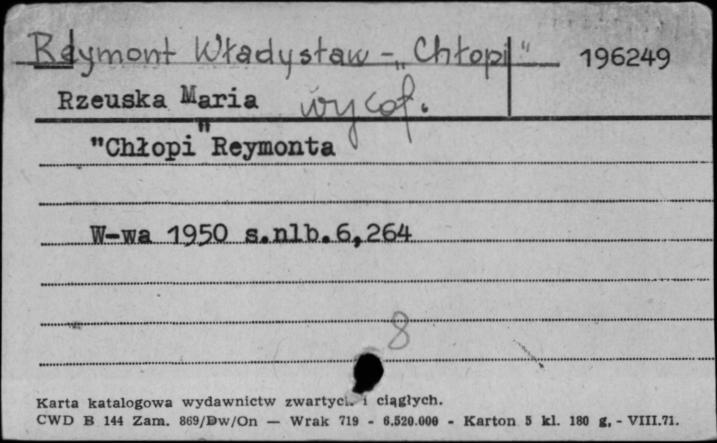 Reymont Władysław - „Chłopi" 196249
Rzeuska Maria wycof.
"Chłopi" Reymonta
W-wa 1950 s.nlb.6,264
8
Karta katalogowa wydawnictw zwartych i ciągłych.
CWD B 144 Zam. 869/Dw/On — Wrak 719 - 6.520.000 - Karton 5 kl. 180 g. - VIII.71.